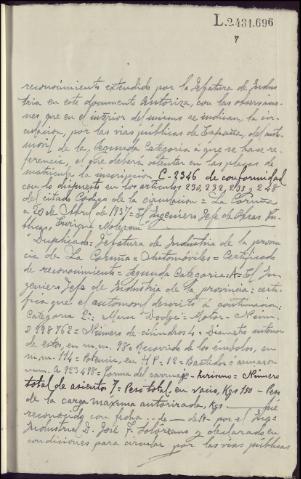 L.2431.696
7
reconocimiento extendido por la Jefatura de Indus
tria en este documento Autoriza, con las observacio
nes que en el interior del mismo se indican, la cir
culación, por las vias publicas de España, del auto
movil de la, segunda Categoria a que se hace re
ferencia, el que deberá ostentar en las placas de
matricula la inscripción C-2346 de conformidad
con lo dispuesto en los articulos 230, 232, 233 y 248
del citado Codigo de la Circulación = La Coruña
a 20 de Abril de = El Ingeniero Jefe de Obras Pu
blicas, Enrique
Duplicado = Jefatura de Industria de la provin
cia de La Coruña = Automóviles = Certificado
de reconocimiento = Segunda Categoria = El In
geniero Jefe de Industria de la provincia: certi
fica que el automovil descrito a continuación;
Categoria 2ª = Marca "Dodge" = Motor = Núm.
= Número de cilindros 4 = Diametro interior
de estos, en m.m. 98 = Recorrido de los émbolos, en
m.m. 114 = Potencia, en H.P. 18 = Bastidor ó armazon
núm. A 923698 = Forma del carruaje = = Número
total de asientos 7. Peso total, en vacio, Kgs = Peso
de la carga máxima autorizada, Kgs. = Fué
reconocido con fecha = de = de = por el Ing.
Industrial D. José F. y declarado en
condiciones para circular por las vias públicas